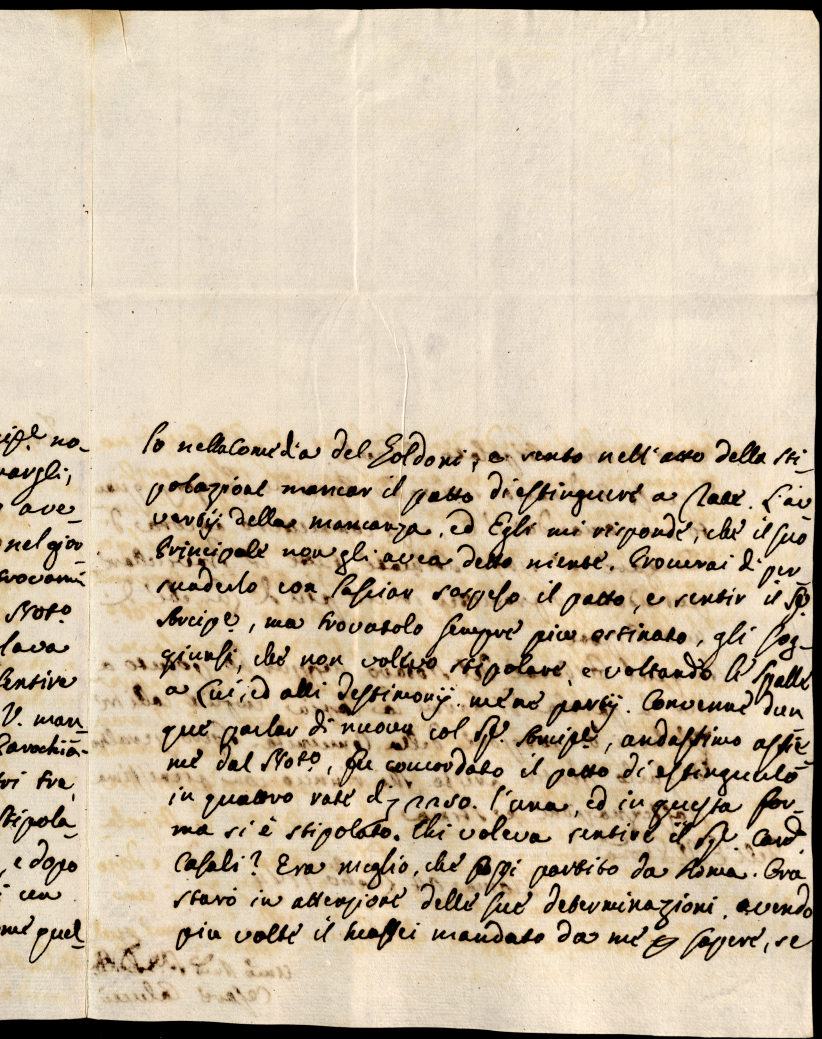 no-
vargli,
ave-
nel gior
trovarmi
Noto
lava
sentire
V. man
Parochia-
tri tre,
stipola-
e dopo
cen
me quel-
lo nella Comedia del Goldoni, e sento nell'atto della sti-
polazione mancar il patto di estinguere a rate. L'av
vertij della mancanza, ed Egli mi risponde, che il suo
Principale non gli avea detto niente. Procurai di per
suaderlo con lasciar sospeso il patto, e sentir il Sig.
Principe, ma trovatolo sempre più ostinato, gli sog-
giunsi, che non volevo stipolare, e voltando le spalle
a Lui, ed alli Testimonij me ne partij. Convenne dun
que parlar di nuovo col Sig. Principe, andassimo assie-
me dal Noto, fu concordato il patto di estinguerlo
in quattro rate di 1250. l'una, ed in questa for-
ma si è stipolato. Chi voleva sentire il Sig. Card.
Casali? Era meglio, che fossi partito da Roma. Ora
starò in attenzione delle sue determinazioni, avendo
più volte il Maffei mandato da me p sapere, se